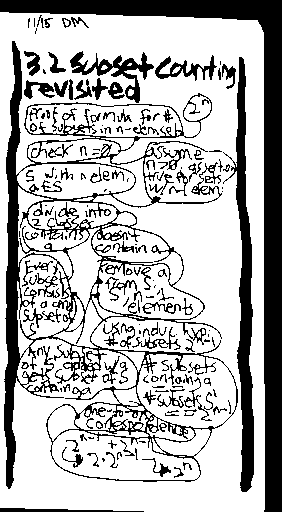 11/15 DM
3.2 subset counting
revisited
Proof of formula for #
of subsets in n-elem set
2^n
check n=0
assume
n>0, assertion
true for sets
w/ n-1 elem
S with n elem
a∈S
divide into
2 classes
contains
a
doesn't
contain a
Every
subset
consists
of a and
subset of
S'
remove a
from S
S', n-1
elements
Using induc. hyp.
# of subsets 2^n-1
Any subset
of S' added w/ a
gets subset of S
containing a
# subsets
containing a
= =
# subsets S' 2^n-1
one-to-one
correspondence
2^n-1 + 2^n-1
2·2^n-1
2^n